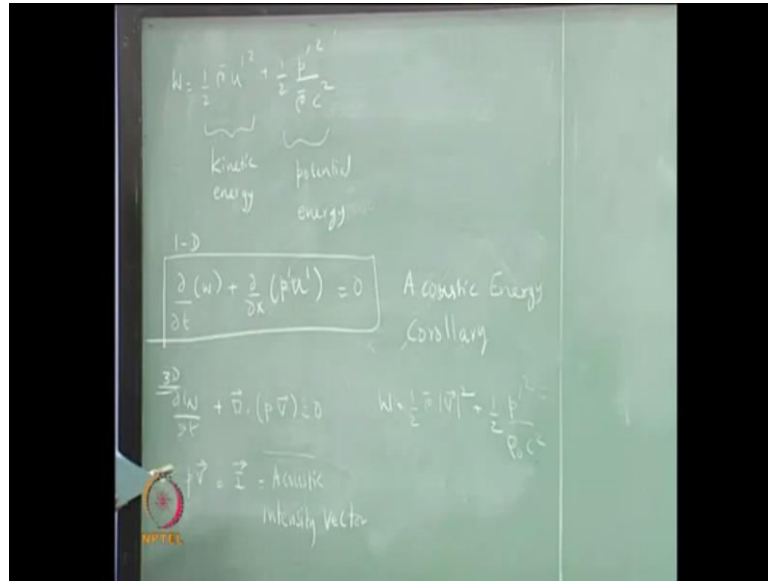 W = 1/2 ρ̄ u'² + 1/2 p'² / ρ̄ c²
kinetic energy
potential energy
1-D
∂/∂t (w) + ∂/∂x (p'u') = 0
Acoustic Energy
Corollary
3D
∂W/∂t + ∇⃗ · (p v⃗) = 0
W = 1/2 ρ̄ |v⃗|² + 1/2 p'² / ρ₀ c²
p v⃗ = I⃗ = Acoustic
intensity vector
NPTEL